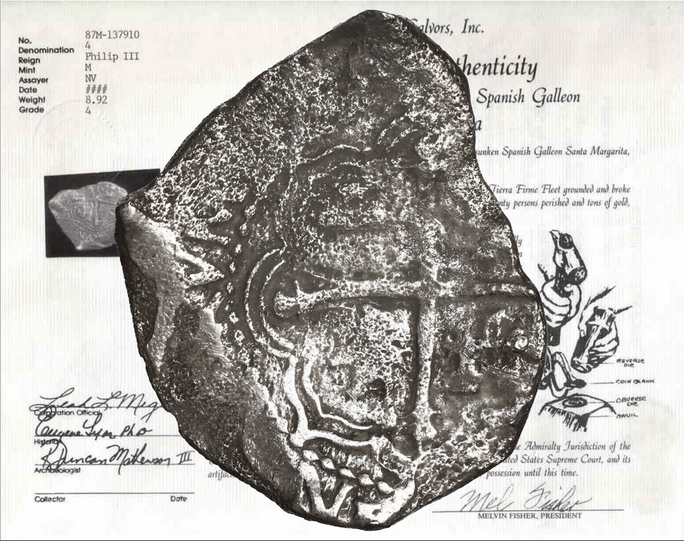 No. 87M-137910
Denomination 4
Reign Philip III
Mint M
Assayer NV
Date ####
Weight 8.92
Grade 4
Salvors, Inc.
thenticity
Spanish Galleon
a
sunken Spanish Galleon Santa Margarita,
Tierra Firme Fleet grounded and broke
nty persons perished and tons of gold,
REVERSE DIE
COIN BLANK
OBVERSE DIE
ANVIL
Corporation Official
Eugene Lyon PhD
Historian
R Duncan Mathewson III
Archaeologist
the Admiralty Jurisdiction of the
ted States Supreme Court, and its
artifac
possession until this time.
Collector Date
Mel Fisher
MELVIN FISHER, PRESIDENT